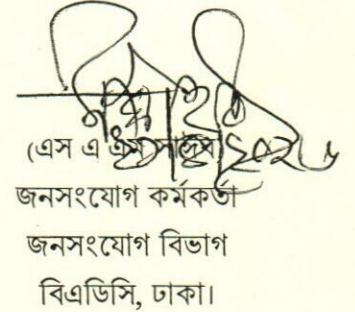 (এস এ এম সাঈব)
জনসংযোগ কর্মকর্তা
জনসংযোগ বিভাগ
বিএডিসি, ঢাকা।